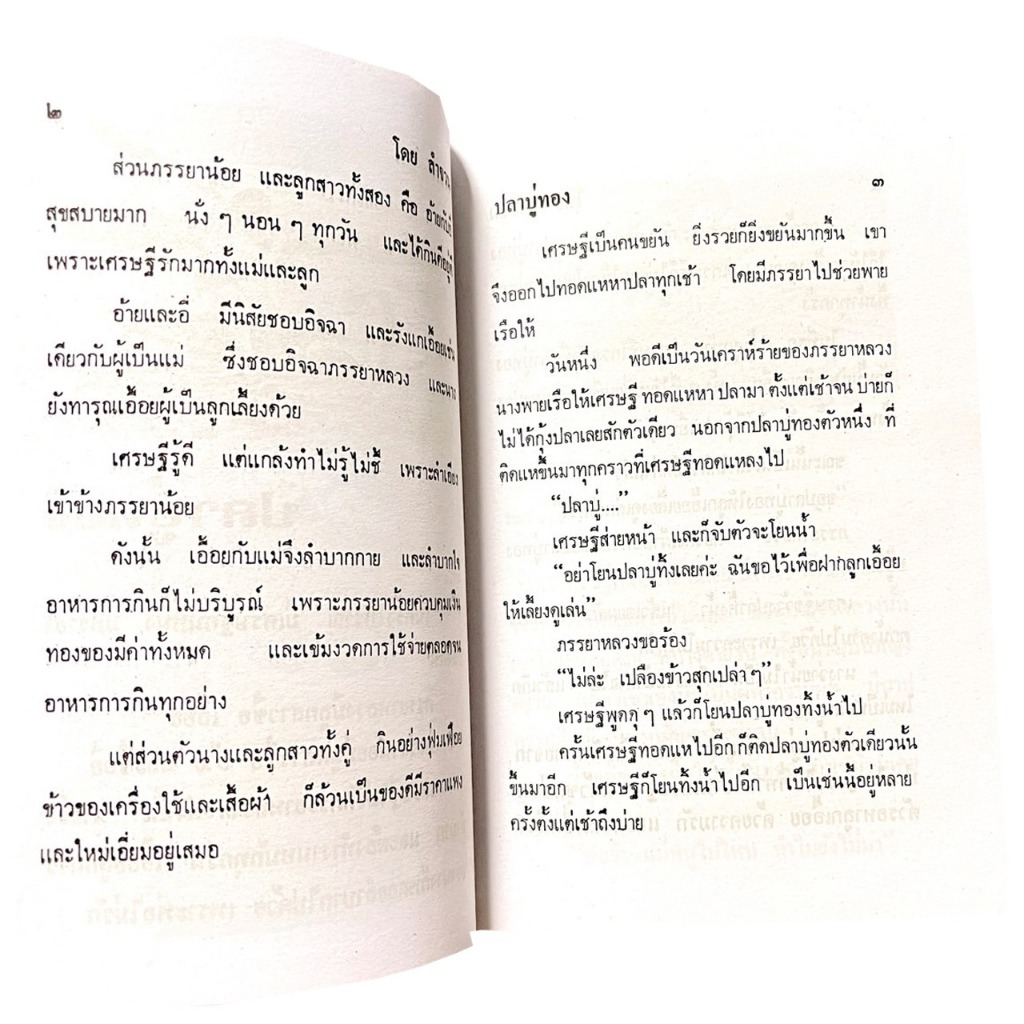 ๒
โดย
ส่วนภรรยาน้อย และลูกสาวทั้งสอง คือ อ้ายกับอี่
สุขสบายมาก นั่ง ๆ นอน ๆ ทุกวัน และได้กินดีอยู่ดี
เพราะเศรษฐีรักมากทั้งแม่และลูก
อ้ายและอี่ มีนิสัยชอบอิจฉา และรังแกเอื้อยเช่น
เดียวกับผู้เป็นแม่ ซึ่งชอบอิจฉาภรรยาหลวง และนาง
ยังทารุณเอื้อยผู้เป็นลูกเลี้ยงด้วย
เศรษฐีรู้ดี แต่แกล้งทำไม่รู้ไม่ชี้ เพราะลำเอียง
เข้าข้างภรรยาน้อย
ดังนั้น เอื้อยกับแม่จึงลำบากกาย และลำบากใจ
อาหารการกินก็ไม่บริบูรณ์ เพราะภรรยาน้อยควบคุมเงิน
ทองของมีค่าทั้งหมด และเข้มงวดการใช้จ่ายตลอดจน
อาหารการกินทุกอย่าง
แต่ส่วนตัวนางและลูกสาวทั้งคู่ กินอย่างฟุ่มเฟือย
ข้าวของเครื่องใช้และเสื้อผ้า ก็ล้วนเป็นของดีมีราคาแพง
และใหม่เอี่ยมอยู่เสมอ
ปลาบู่ทอง ๓
เศรษฐีเป็นคนขยัน ยิ่งรวยก็ยิ่งขยันมากขึ้น เขา
จึงออกไปทอดแหหาปลาทุกเช้า โดยมีภรรยาไปช่วยพาย
เรือให้
วันหนึ่ง พอดีเป็นวันเคราห์ร้ายของภรรยาหลวง
นางพายเรือให้เศรษฐี ทอดแหหา ปลามา ตั้งแต่เช้าจน บ่ายก็
ไม่ได้กุ้งปลาเลยสักตัวเดียว นอกจากปลาบู่ทองตัวหนึ่ง ที่
ติดแหขึ้นมาทุกคราวที่เศรษฐีทอดแหลงไป
“ปลาบู่....”
เศรษฐีส่ายหน้า และก็จับตัวจะโยนน้ำ
“อย่าโยนปลาบู่ทิ้งเลยค่ะ ฉันขอไว้เพื่อฝากลูกเอื้อย
ให้เลี้ยงดูเล่น”
ภรรยาหลวงขอร้อง
“ไม่ล่ะ เปลืองข้าวสุกเปล่า ๆ”
เศรษฐีพูดดุ ๆ แล้วก็โยนปลาบู่ทองทิ้งน้ำไป
ครั้นเศรษฐีทอดแหไปอีก ก็ติดปลาบู่ทองตัวเดียวนั้น
ขึ้นมาอีก เศรษฐีก็โยนทิ้งน้ำไปอีก เป็นเช่นนี้อยู่หลาย
ครั้งตั้งแต่เช้าถึงบ่าย